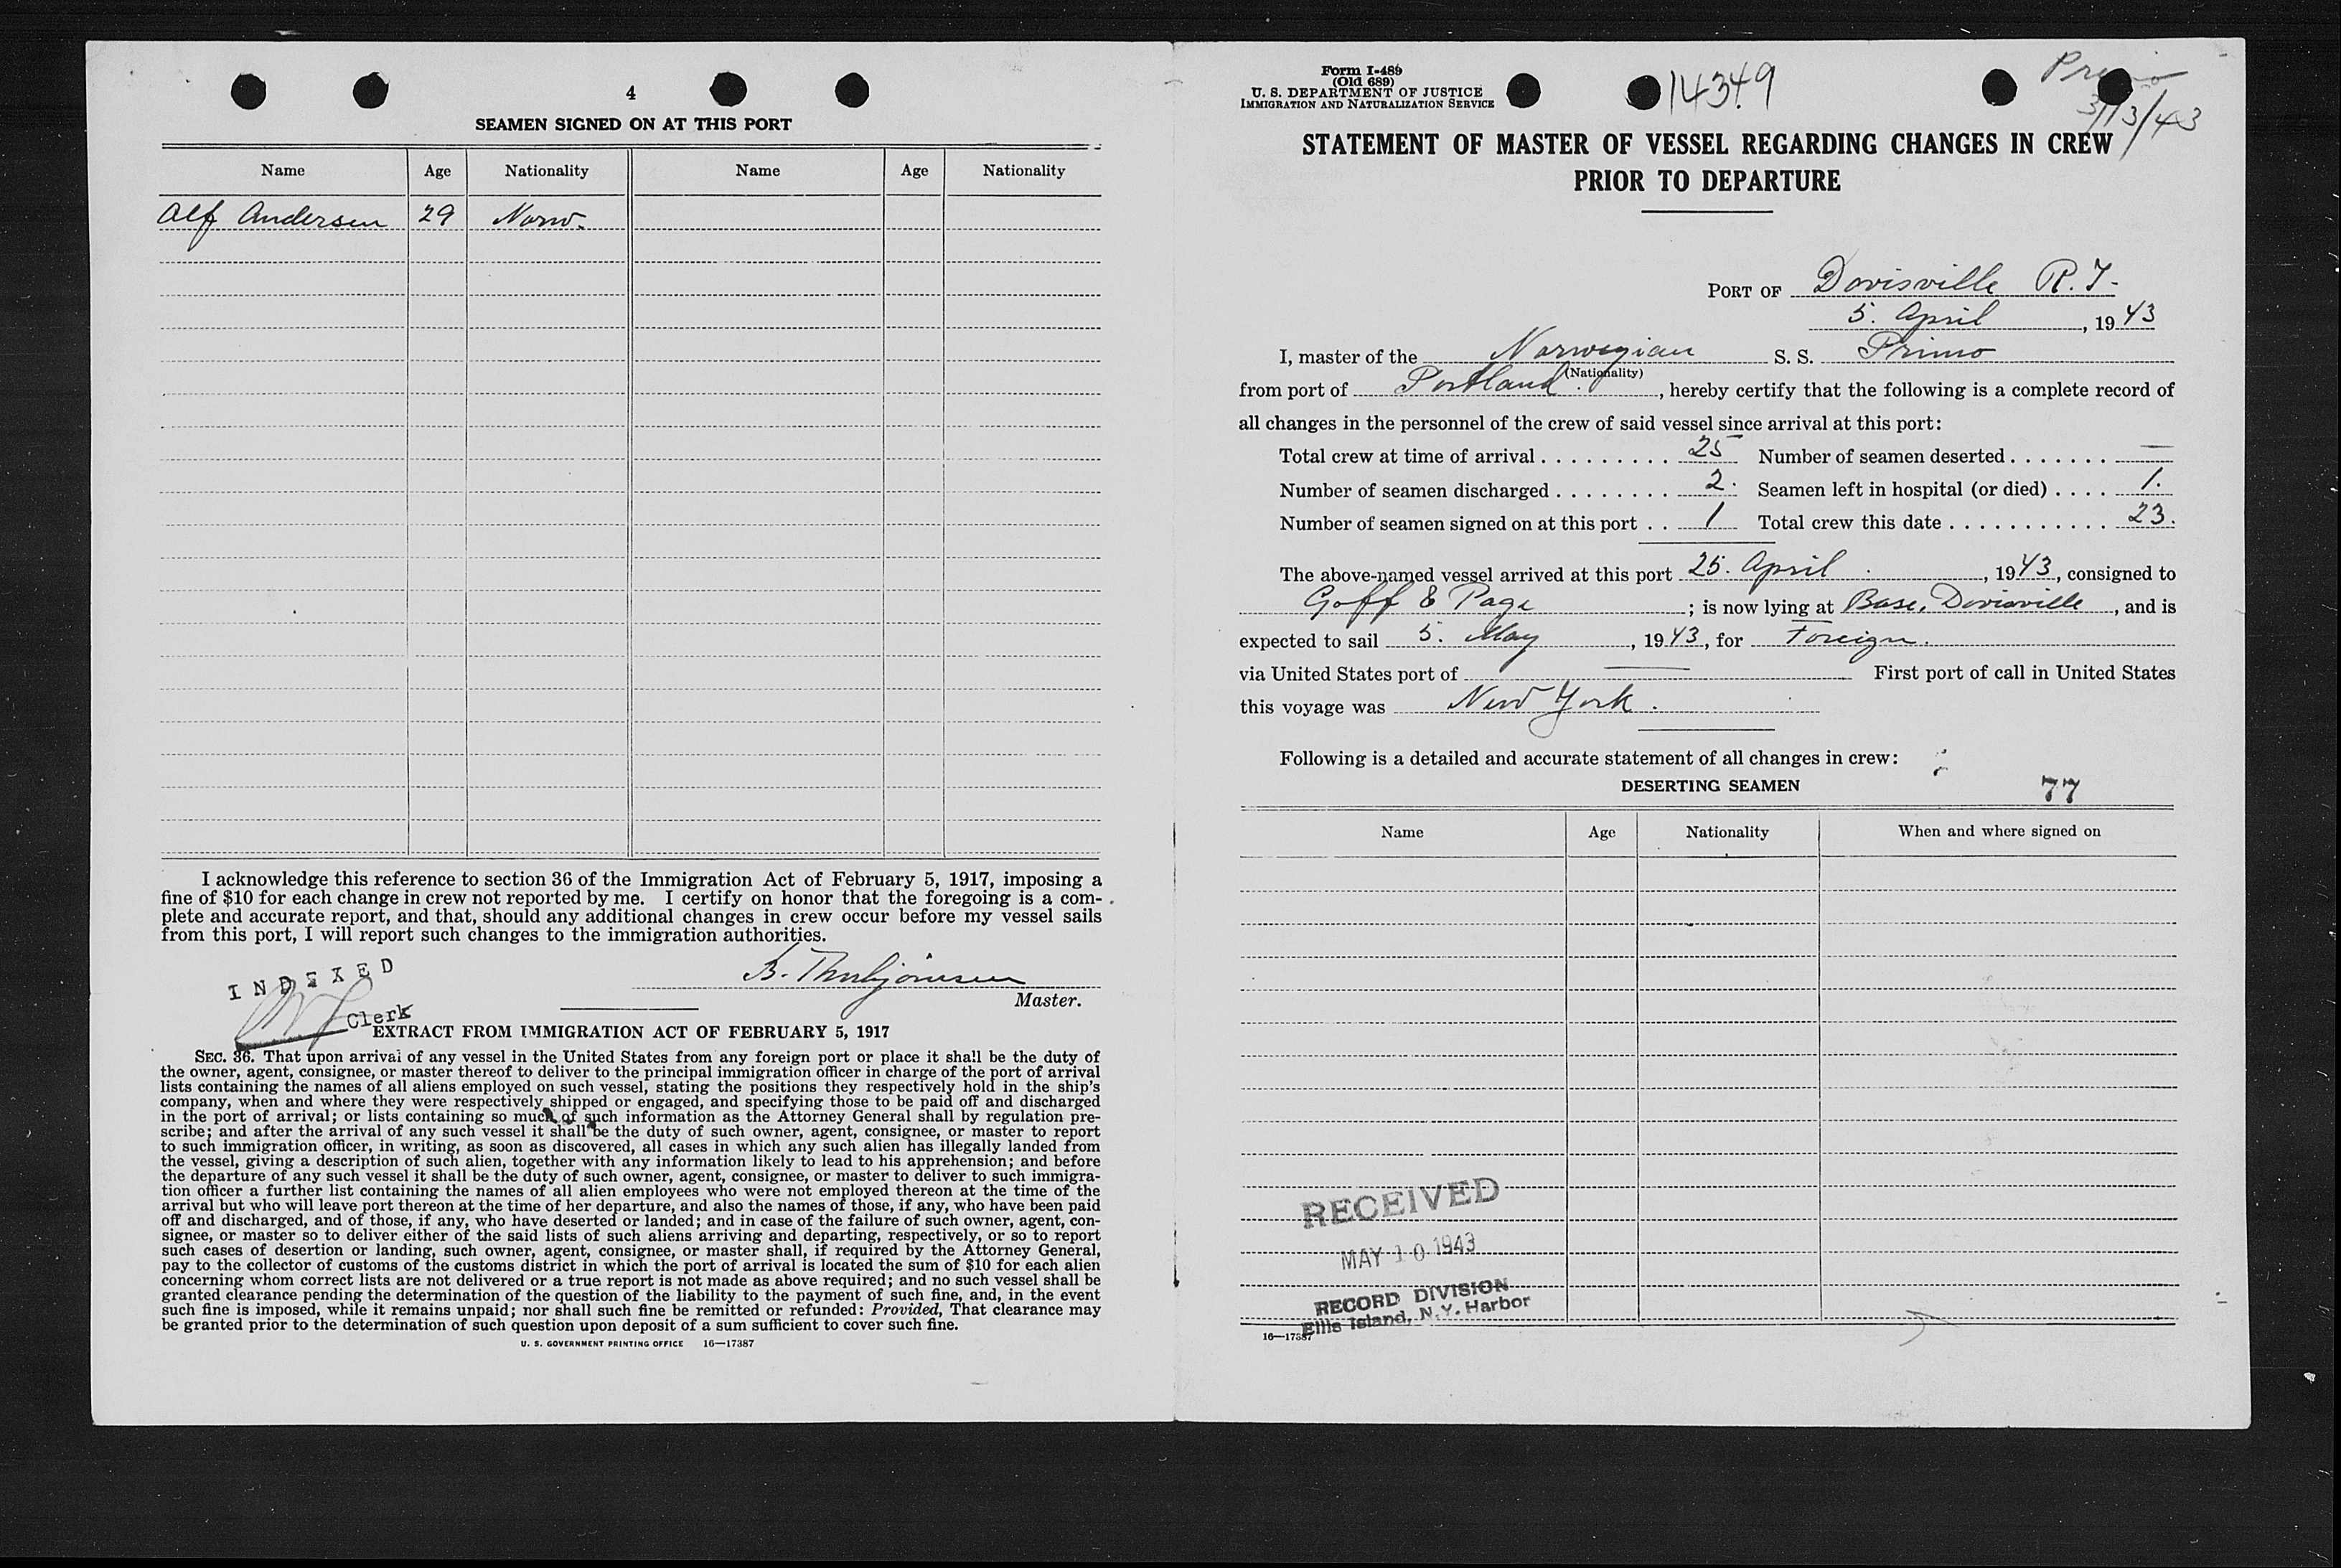 4
SEAMEN SIGNED ON AT THIS PORT
Name Age Nationality Name Age Nationality
Alf Andersen 29 Norw.
I acknowledge this reference to section 36 of the Immigration Act of February 5, 1917, imposing a
fine of $10 for each change in crew not reported by me. I certify on honor that the foregoing is a com-
plete and accurate report, and that, should any additional changes in crew occur before my vessel sails
from this port, I will report such changes to the immigration authorities.
INDEXED
B. Thorbjörnsen
Master.
Clerk
EXTRACT FROM IMMIGRATION ACT OF FEBRUARY 5, 1917
SEC. 36. That upon arrival of any vessel in the United States from any foreign port or place it shall be the duty of
the owner, agent, consignee, or master thereof to deliver to the principal immigration officer in charge of the port of arrival
lists containing the names of all aliens employed on such vessel, stating the positions they respectively hold in the ship's
company, when and where they were respectively shipped or engaged, and specifying those to be paid off and discharged
in the port of arrival; or lists containing so much of such information as the Attorney General shall by regulation pre-
scribe; and after the arrival of any such vessel it shall be the duty of such owner, agent, consignee, or master to report
to such immigration officer, in writing, as soon as discovered, all cases in which any such alien has illegally landed from
the vessel, giving a description of such alien, together with any information likely to lead to his apprehension; and before
the departure of any such vessel it shall be the duty of such owner, agent, consignee, or master to deliver to such immigra-
tion officer a further list containing the names of all alien employees who were not employed thereon at the time of the
arrival but who will leave port thereon at the time of her departure, and also the names of those, if any, who have been paid
off and discharged, and of those, if any, who have deserted or landed; and in case of the failure of such owner, agent, con-
signee, or master so to deliver either of the said lists of such aliens arriving and departing, respectively, or so to report
such cases of desertion or landing, such owner, agent, consignee, or master shall, if required by the Attorney General,
pay to the collector of customs of the customs district in which the port of arrival is located the sum of $10 for each alien
concerning whom correct lists are not delivered or a true report is not made as above required; and no such vessel shall be
granted clearance pending the determination of the question of the liability to the payment of such fine, and, in the event
such fine is imposed, while it remains unpaid; nor shall such fine be remitted or refunded: Provided, That clearance may
be granted prior to the determination of such question upon deposit of a sum sufficient to cover such fine.
U. S. GOVERNMENT PRINTING OFFICE 16—17387
Form I-489
(Old 689)
U. S. DEPARTMENT OF JUSTICE
IMMIGRATION AND NATURALIZATION SERVICE
14349
Primo
3/13/43
STATEMENT OF MASTER OF VESSEL REGARDING CHANGES IN CREW
PRIOR TO DEPARTURE
PORT OF Davisville R.I.
5. April, 1943
I, master of the Norwegian S. S. Primo
(Nationality)
from port of Portland., hereby certify that the following is a complete record of
all changes in the personnel of the crew of said vessel since arrival at this port:
Total crew at time of arrival . . . . . . . . . 25 Number of seamen deserted . . . . . . . —
Number of seamen discharged . . . . . . . . 2. Seamen left in hospital (or died) . . . . 1.
Number of seamen signed on at this port . . 1 Total crew this date . . . . . . . . . . . 23.
The above-named vessel arrived at this port 25. April, 1943, consigned to
Goff & Page; is now lying at Base, Davisville, and is
expected to sail 5. May, 1943, for Foreign.
via United States port of — First port of call in United States
this voyage was New York.
Following is a detailed and accurate statement of all changes in crew:
DESERTING SEAMEN
77
Name Age Nationality When and where signed on
RECEIVED
MAY 10 1943
RECORD DIVISION
Ellis Island, N.Y. Harbor
16—17387